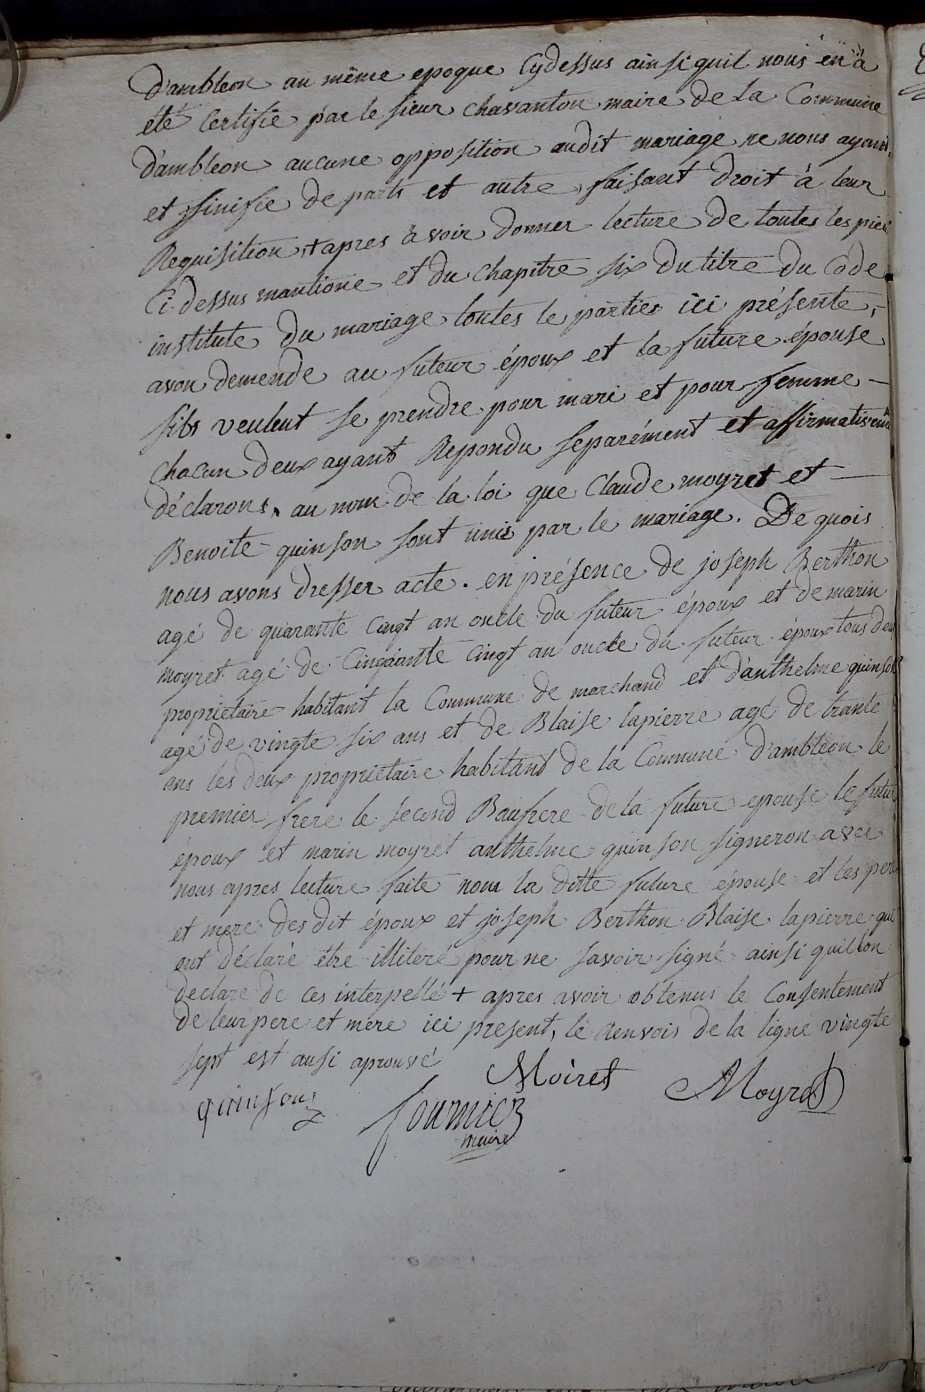 d'ambleon au même epoque Cydessus ainsi quil nous en a
été Certifie par le sieur chavanton maire de la Commune
d'ambleon aucune opposition audit mariage ne nous ayant
et sinifie de parts et autre, faisant droit à leur
Requisition, + apres avoir donner lecture de toutes les pie
Ci dessus mantione et du chapitre six du titre du Code
institute du mariage toutes le parties ici présente,
avon demende au futeur époux et la future épouse
sils veulent se prendre pour mari et pour femme —
chacun deux ayant Repondu separément et affirmativem
déclarons, au nom de la loi que Claude moyret et —
Benoite quinson sont unis par le mariage. De quois
nous avons dresser acte. en présence de joseph Berthon
agé de quarante cingt an oncle du futeur époux et de marin
moyret agé de Cinquante cingt an oncle du futeur époux tous deu
propriétaire habitant la Commune de marchand et d'anthelme quinson
agé de vingte six ans et de Blaise lapierre agé de trante
ans les deux propriétaire habitant de la Commune d'ambleon le
premier frere le second Baufrere de la future epouse le futur
époux et marin moyret anthelme quinson signeron avec
nous apres lecture faite non la ditte future épouse et les per
et mere desdit époux et joseph Berthon Blaise lapierre qui
ont déclaré être illitéré pour ne savoir signé ainsi quil lon
declare de ces interpellé + apres avoir obtenus le Consentement
de leur pere et mere ici present, le Renvois de la ligne vingte
sept est ausi aprouvé
Moiret
Moyret
quinson
fournier
maire